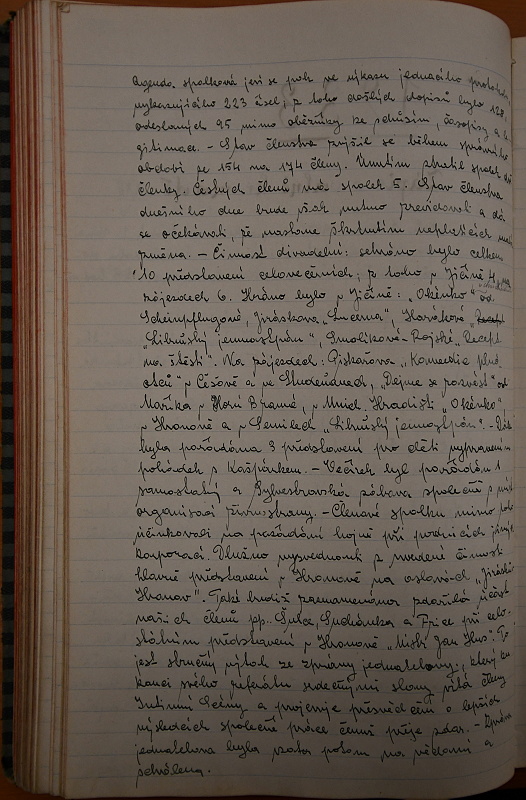 Agenda spolková jeví se pak ve výkazu jednacího protokolu,
vykazujícího 223 čísel; z toho došlých dopisů bylo 128,
odeslaných 95 mimo oběžníky ke schůzím, časopisy a le-
gitimace. - Stav členstva zvýšil se během správního
období ze 154 na 174 členy. Úmrtím ztratil spolek
členky. Čestných členů má spolek 5. Stav členstva
dnešního dne bude však nutno prevýdovati a dá
se očekávati, že nastane škrtnutím neplatících
změna. - Činnost divadelní: sehráno bylo celkem
10 představení celovečerních; z toho v Jičíně 4, na
zájezdech 6. Hráno bylo v Jičíně: "Okénko" od
Scheinpflugové, Jiráskova "Lucerna", Horákové
"Líbušský jemnostpán", Smolíkové-Rojské "Recept
na štěstí". Na zájezdech: Piskořova "Komedie plná
otců" v Češově a ve Studeňanech, "Dejme se rozvést" od
Maříka v Horní Branné, v Mnich. Hradišti "Okénko"
v Hronově a v Semilech "Líbušský jemnostpán". -
byla pořádána 3 představení pro děti vypravením
pohádek s Kašpárkem. - Večírek byl pořádán 1
samostatný a Sylvestrovská zábava společně s
organisací živnostnany. - Členové spolku mimo
účinkovali na pořádání hojně při podnicích jiných
korporací. Dlužno vyzvednouti z uvedené činnosti
hlavně představení v Hronově na oslavách "Jiráskův
Hronov". Také budiž zaznamenána zdařilá účast
našich členů pp. Šulce, Suchánka a Frice při celo-
státním představení v Hronově "Mistr Jan Hus". To
jest stručný výtah ze zprávy jednatelovy, který ku
konci svého referátu srdečnými slovy vítá členy
Intimní scény a projevuje přesvědčení o lepších
výsledcích společné práce čemuž přeje zdar. - Zpráva
jednatelova byla vzata potom na vědomí a
schválena.